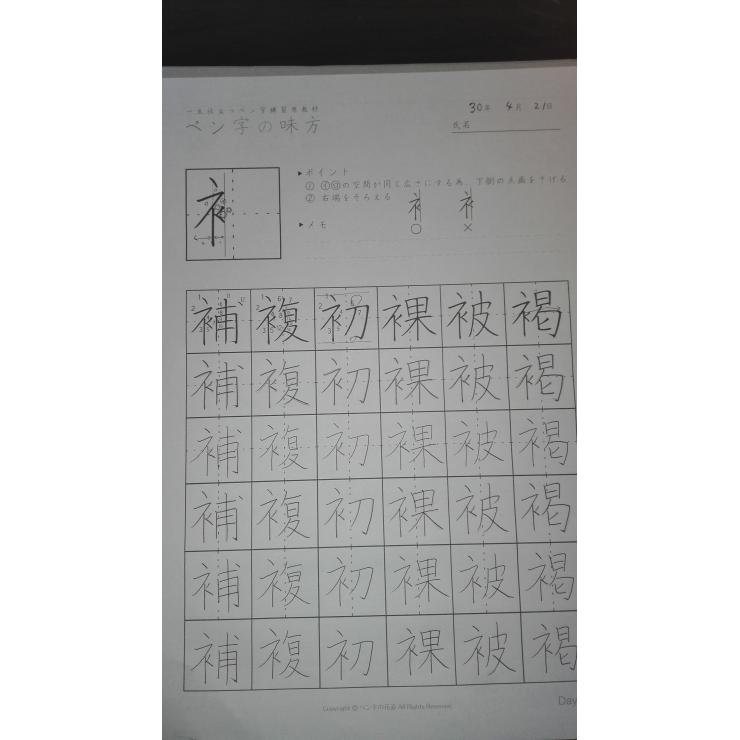 一生役立つペン字練習用教材
ペン字の味方
30年 4月 21日
氏名
衤
▶ポイント
① ㋑㋺の空間が同じ広さにする為、下側の点画を下げる
② 右端をそろえる
▶メモ
衤 衤
○ ×
補 複 初 裸 被 褐
補 複 初 裸 被 褐
補 複 初 裸 被 褐
補 複 初 裸 被 褐
補 複 初 裸 被 褐
補 複 初 裸 被 褐
Copyright © ペン字の花道 All Rights Reserved.
Day